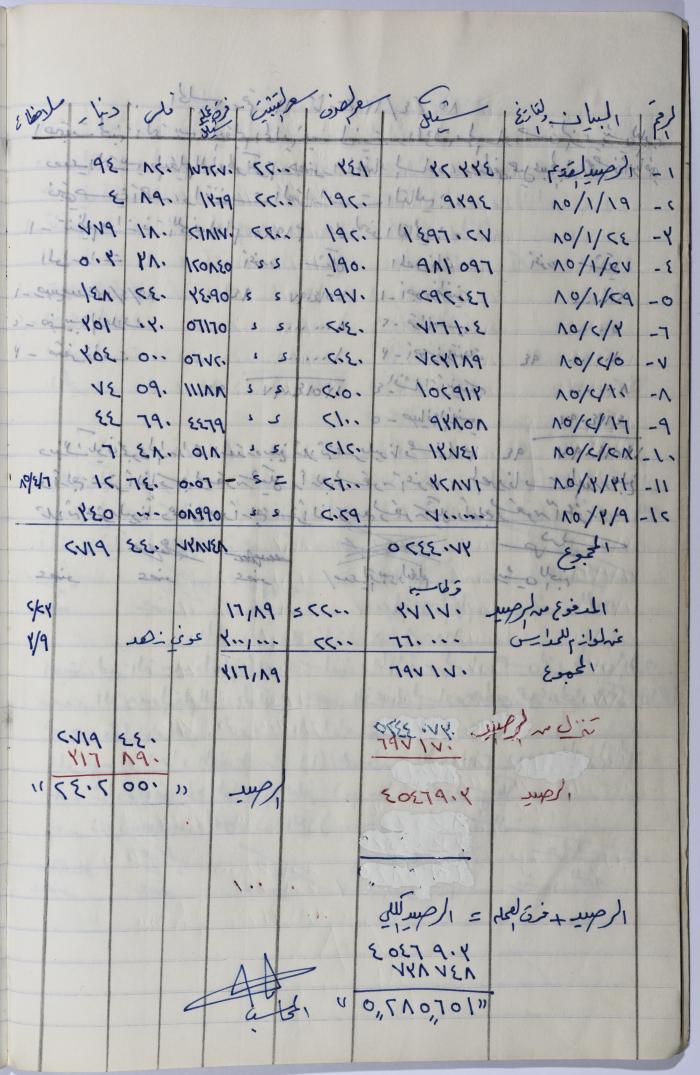 الرقم البيان والتاريخ شيكل سعر الصرف سعر التثبيت فرق عملة شيكل فلس دينار ملاحظات
١- الرصيد القديم ٣٢٣٣٤ ٣٤١ ٢٢٠٠ ١٧٦٢٧٠ ٨٢٠ ٩٤
٢- ٨٥/١/١٩ ٩٣٩٤ ١٩٢٠ ٢٢٠٠ ١٣٦٩ ٨٩٠ ٤
٣- ٨٥/١/٢٤ ١٤٩٦٠٢٧ ١٩٢٠ ٢٢٠٠ ٢١٨١٧٠ ١٨٠ ٧٧٩
٤- ٨٥/١/٢٧ ٩٨١٥٩٦ ١٩٥٠ ء ء ١٢٥٨٤٥ ٣٨٠ ٥٠٣
٥- ٨٥/١/٢٩ ٢٩٢٠٤٦ ١٩٧٠ ء ء ٣٤٠٩٥ ٢٤٠ ١٤٨
٦- ٨٥/٢/٣ ٧١٦١٠٤ ٢٠٤٠ ء ء ٥٦١٦٥ ٠٣٠ ٣٥١
٧- ٨٥/٢/٥ ٧٢٣١٨٩ ٢٠٤٠ ء ء ٥٦٧٢٠ ٥٠٠ ٣٥٤
٨- ٨٥/٢/١٠ ١٥٢٩١٣ ٢٠٥٠ ء ء ١١١٨٨ ٥٩٠ ٧٤
٩- ٨٥/٢/١٦ ٩٣٨٥٨ ٢١٠٠ ء ء ٤٤٦٩ ٦٩٠ ٤٤
١٠- ٨٥/٢/٢٨ ١٣٧٤١ ٢١٢٠ ء ء ٥١٨ ٤٨٠ ٦
١١- ٣٢٨٧١ ٢٦٠٠ = ء - ٥٠٥٦ ٦٤٠ ١٢ ٨٥/٤/٦
١٢- ٨٥/٣/٩ ٧٠٠٠٠٠ ٢٠٢٩ ء ء ٥٨٩٩٥ ٠٠٠ ٣٤٥
المجموع ٥٢٤٤٠٧٣ ٧٣٨٧٤٨ ٤٤٠ ٢٧١٩
قرطاسيه
المدفوع من الرصيد ٣٧١٧٠ ٢٢٠٠ء ١٦,٨٩ ٢/٢٣
عن لوازم للمدارس ٦٦٠٠٠٠ ٢٢٠٠ ٣٠٠,٠٠٠ عوني زهد ٣/٩
المجموع ٦٩٧١٧٠ ٣١٦,٨٩
تنزيل من الرصيد. ٥٢٤٤٠٧٣ ٤٤٠ ٢٧١٩
٦٩٧١٧٠ ٨٩٠ ٣١٦
الرصيد ٤٥٤٦٩٠٣ الرصيد " ٥٥٠ ٢٤٠٢ "
١٠٠
الرصيد + فرق العمله = الرصيد الكلي
٤٥٤٦٩٠٣
٧٣٨٧٤٨
"٥,٢٨٥,٦٥١"
المحاسب